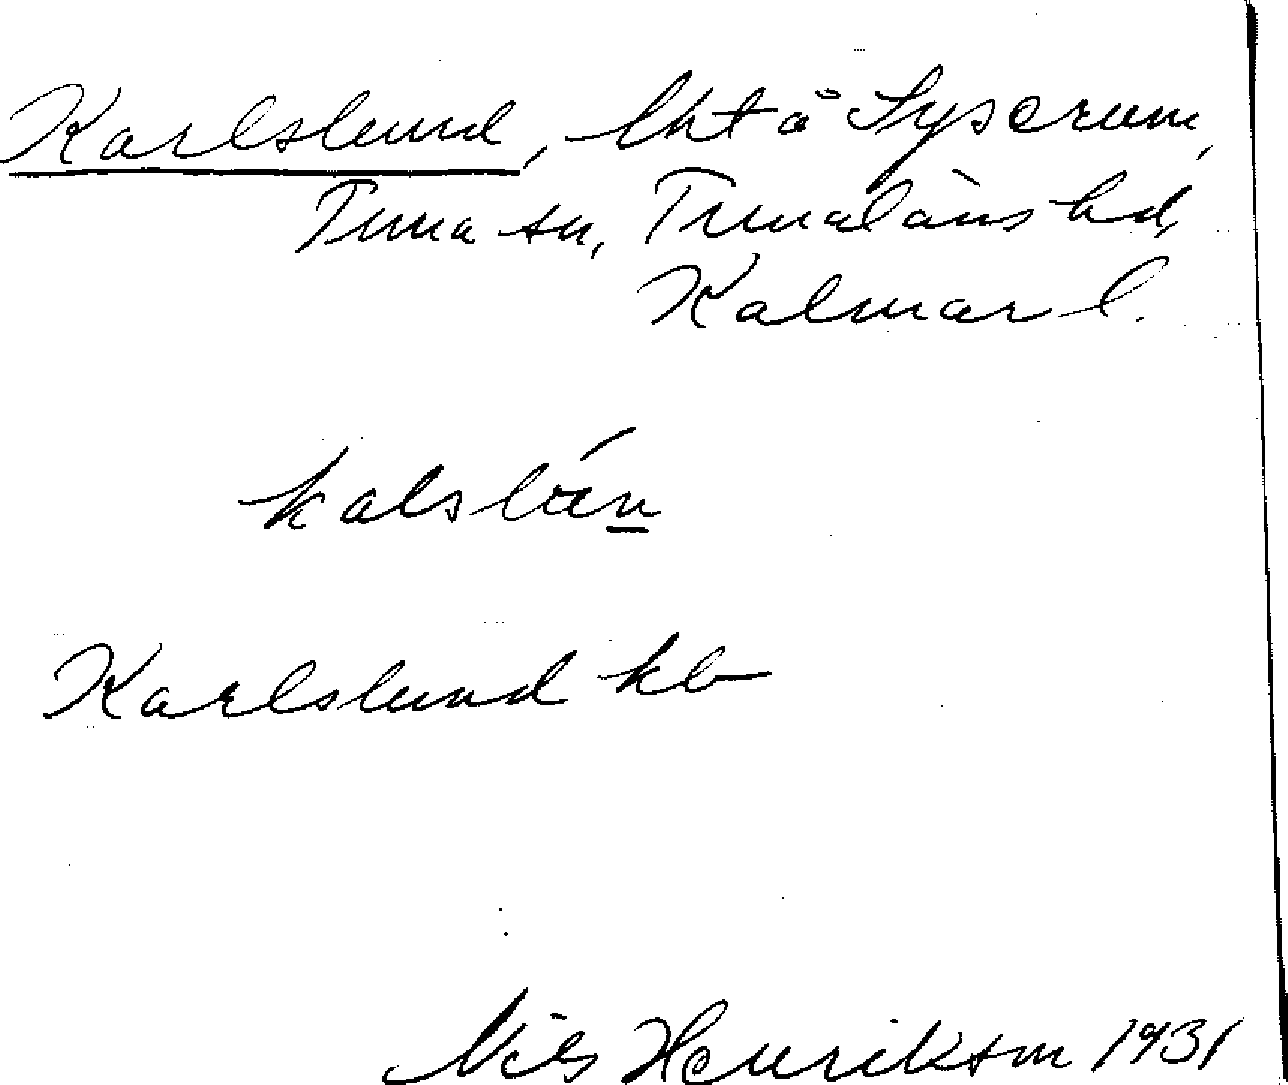 Karlslund, lht å Syserum,
Tuna sn, Tunaläns hd,
Kalmar l.
Karlslund kb
Nils Henrikson 1931